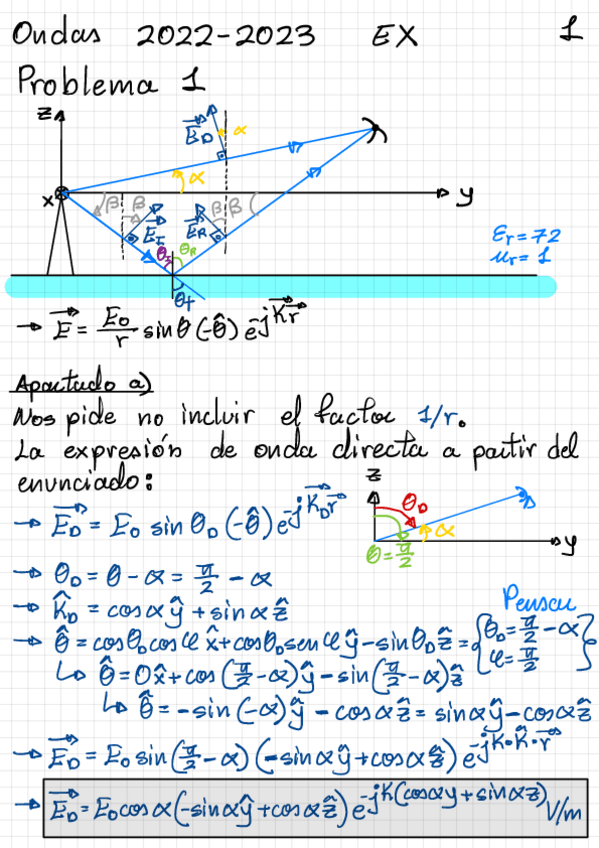 Ondas 2022-2023 EX 1
Problema 1
z
E_D→ α
α
x y
β β β β
E_I→ E_R→
θ_I θ_R
ε_r = 72
μ_r = 1
θ_t
→ E→ = E_0/r sin θ (-θ̂) e^{-jK→r→}
Apartado a)
Nos pide no incluir el factor 1/r.
La expresión de onda directa a partir del
enunciado:
z
θ_D
α
y
θ = π/2
→ E_D→ = E_0 sin θ_D (-θ̂) e^{-jK_D→r→}
→ θ_D = θ - α = π/2 - α
→ K̂_D = cos α ŷ + sin α ẑ
Pensar
→ θ̂ = cos θ_D cos φ x̂ + cos θ_D sen φ ŷ - sin θ_D ẑ = {θ_D = π/2 - α
φ = π/2}
↳ θ̂ = 0x̂ + cos (π/2 - α) ŷ - sin (π/2 - α) ẑ
↳ θ̂ = -sin (-α) ŷ - cos α ẑ = sin α ŷ - cos α ẑ
→ E_D→ = E_0 sin (π/2 - α) (-sin α ŷ + cos α ẑ) e^{-jK·K̂·r→}
→ E_D→ = E_0 cos α (-sin α ŷ + cos α ẑ) e^{-jK(cos α y + sin α z)} V/m